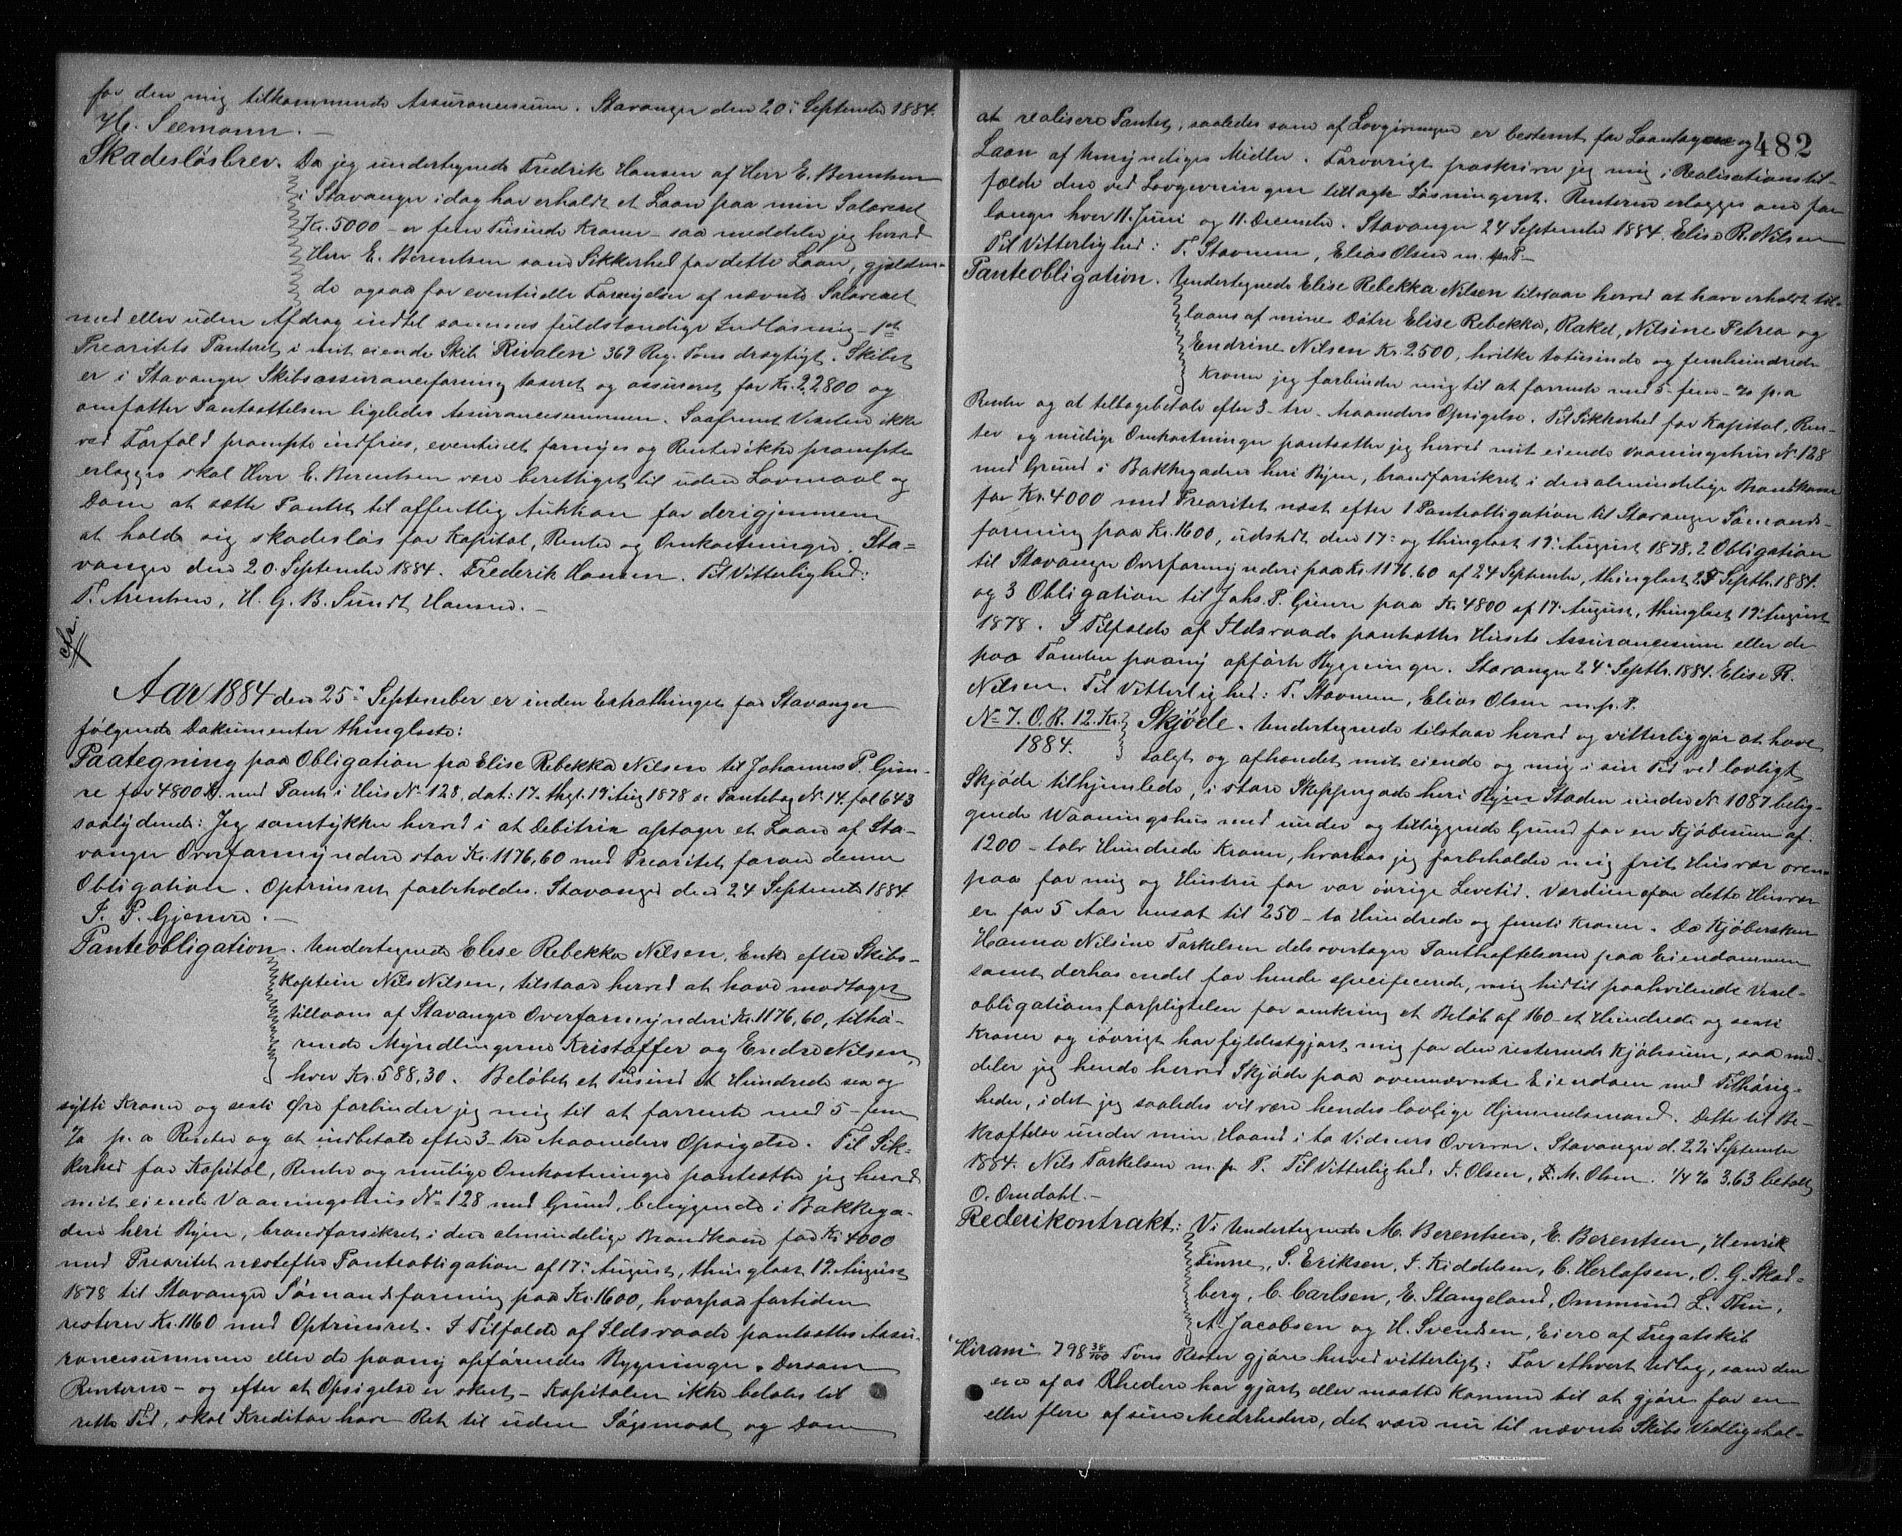 for den mig tilkommende Assurancesum. Stavanger den 20' September 1884.
H. Seemann. —
Skadesløsbrev. Da jeg undertegnede Fredrik Hansen af Herr E. Berentsen
i Stavanger idag har erholdt et Laan paa min Solavexel
Kr. 5000 — er fem Tusinde Kroner — saa meddeler jeg herved
Herr E. Berentsen som Sikkerhed for dette Laan, gjælden-
de ogsaa for eventuelle Fornyelser af nævnte Solavexel
med eller uden Afdrag indtil sammes fuldstændige Indløsning — 1st
Prioritets Panteret i mit eiende Skib "Rivalen" 369 Reg. Tons drægtigt. Skibet
er i Stavanger Skibsassuranceforening taxeret og assureret for Kr. 22800 og
omfatter Pantsættelsen ligeledes Assurancesummen. Saafremt Vexelen ikke
ved Forfald prompte indfries, eventuelt fornyes og Renter ikke prompte
erlægges skal Herr E. Berentsen være berettiget til uden Lovmaal og
Dom at sætte Pantet til offentlig Auktion for derigjennem
at holde sig skadesløs for Kapital, Renter og Omkostninger. Sta-
vanger den 20. September 1884. Frederik Hansen. Til Vitterlighed:
T. Arentsen, H. G. B. Sundt Hansen. —
Aar 1884 den 25' September er inden Extrathinget for Stavanger
følgende Dokumenter thinglæste:
Paategning paa Obligation fra Elise Rebekka Nilsen til Johannes P. Gjem-
re for 4800 Kr. med Pant i Hus No 128, dat: 17. thgl. 19 Aug 1878 se Pantebog No 14. fol 643
saalydende: Jeg samtykker herved i at Debitrix optager et Laan af Sta-
vanger Overformynderi stor Kr. 1176,60 med Prioritet foran denne
Obligation. Optrinsret forbeholdes. Stavanger den 24 September 1884.
J. P. Gjemre. —
Panteobligation. Undertegnede Elise Rebekka Nilsen, Enke efter Skibs-
kaptein Nils Nilsen, tilstaar herved at have modtaget
tillaans af Stavanger Overformynderi Kr. 1176,60, tilhø-
rende Myndlingerne Kristoffer og Endre Nilsen,
hver Kr. 588,30. Beløbet et Tusind et Hundrede sex og
sytti Kroner og sexti Øre forbinder jeg mig til at forrente med 5 — fem
% p. a Renter og at indbetale efter 3 — tre Maaneders Opsigelse. Til Sik-
kerhed for Kapital, Renter og mulige Omkostninger pantsætter jeg herved
mit eiende Vaaningshus No 128 med Grund, beliggende i Bakkega-
den heri Byen, brandforsikret i den almindelige Brandkasse for Kr 4000
med Prioritet næstefter Panteobligation af 17' August, thinglæst 19 August
1878 til Stavanger Sømandsforening paa Kr. 1600, hvorpaa fortiden
resterer Kr. 1160 med Optrinsret. I Tilfælde af Ildsvaade pantsættes Assu-
rancesummen eller de paany opførendes Bygninger. Dersom
Renterne — og efter at Opsigelse er skeet — Kapitalen ikke betales til
rette Tid, skal Kreditor have Ret til uden Søgsmaal og Dom
482
at realisere Pantet, saaledes som af Lovgivningen er bestemt for Laantagere og
Laan af Umyndiges Midler. Forøvrigt fraskriver jeg mig i Realisationstil-
fælde den ved Lovgivningen tillagte Løsningsret. Renterne erlægges om for-
langes hver 11. Juni og 11. December. Stavanger 24 September 1884. Elise R. Nilsen
Til Vitterlighed: T. Stavnem, Elias Olsen m. p. P. —
Panteobligation. Undertegnede Elise Rebekka Nilsen tilstaar herved at have erholdt til-
laans af mine Døtre Elise Rebekka, Rakel, Nilsine Petrea og
Endrine Nilsen Kr. 2500, hvilke totusinde og femhundrede
Kroner jeg forbinder mig til at forrente med 5 — fem — % p. a
Renter og at tilbagebetale efter 3 — tre — Maaneders Opsigelse. Til Sikkerhed for Kapital, Ren-
ter og mulige Omkostninger pantsætter jeg herved mit eiende Vaaningshus No 128
med Grund i Bakkegaden heri Byen, brandforsikret i den almindelige Brandkasse
for Kr. 4000 med Prioritet næst efter 1 Panteobligation til Stavanger Sømands-
forening paa Kr. 1600, udstedt den 17' og thinglæst 19' August 1878, 2 Obligation
til Stavanger Overformynderi paa Kr. 1176.60 af 24 September, thinglæst 25 Septbr. 1884.
og 3 Obligation til Johs. P. Gjemre paa Kr. 4800 af 17' August, thinglæst 19' August
1878. I Tilfælde af Ildsvaade pantsættes Husets Assurancesum eller de
paa Tomten paany opførte Bygninger. Stavanger 24' Septbr. 1884. Elise R.
Nilsen. Til Vitterlighed: T. Stavnem, Elias Olsen m. p. P.
No 7. O. K. 12. Kr.
1884.
Skjøde. Undertegnede tilstaar herved og vitterliggjør at have
solgt og afhændet mit eiende og mig i sin Tid ved lovligt
Skjøde tilhjemlede, i store Skippergade heri Byen Staden under No 1087 belig-
gende Vaaningshus med under og tilliggende Grund for en Kjøbesum af
1200 — tolv Hundrede Kroner, hvorhos jeg forbeholder mig frit Husvær oven-
paa for mig og Hustru for vor øvrige Levetid. Værdien for dette Husvær
er for 5 Aar ansat til 250 — to Hundrede og femti Kroner. Da Kjøbersken
Hanna Nilsine Torkelsen dels overtager Panthæftelserne paa Eiendommen
samt derhos endel for hende specificerede, mig hidtil paahvilende Vexel-
obligationsforpligtelser for omkring et Beløb af 160 — et Hundrede og sexti
Kroner og iøvrigt har fyldestgjort mig for den resterende Kjøbesum, saa med-
deler jeg hende herved Skjøde paa ovennævnte Eiendom med Tilhørig-
heder, idet jeg saaledes vil være hendes lovlige Hjemmelsmand. Dette til Be-
kræftelse under min Haand i to Vidners Overvær. Stavanger d. 22' September
1884. Nils Torkelsen m. p. P. Til Vitterlighed, I. Olsen, L. M. Olsen. ¼ % 3,63 betalt
O. Omdahl. —
Rederikontrakt: Vi Undertegnede M. Berentsen, E. Berentsen, Henrik
Finne, S. Eriksen, J. Kiddelsen, C. Herlofsen, O. G. Skad-
berg, C. Carlsen, E. Stangeland, Ommund L. Thu,
A. Jacobsen og H. Svendsen, Eiere af Fregatskib
"Hiram" 798 38/100 Tons Rester gjøre herved vitterligt: For ethvert Udlæg, som den
ene af os Rhedere har gjort eller maatte komme til at gjøre for en
eller flere af sine Medrhedere, det være nu til nævnte Skibs Vedligehol-